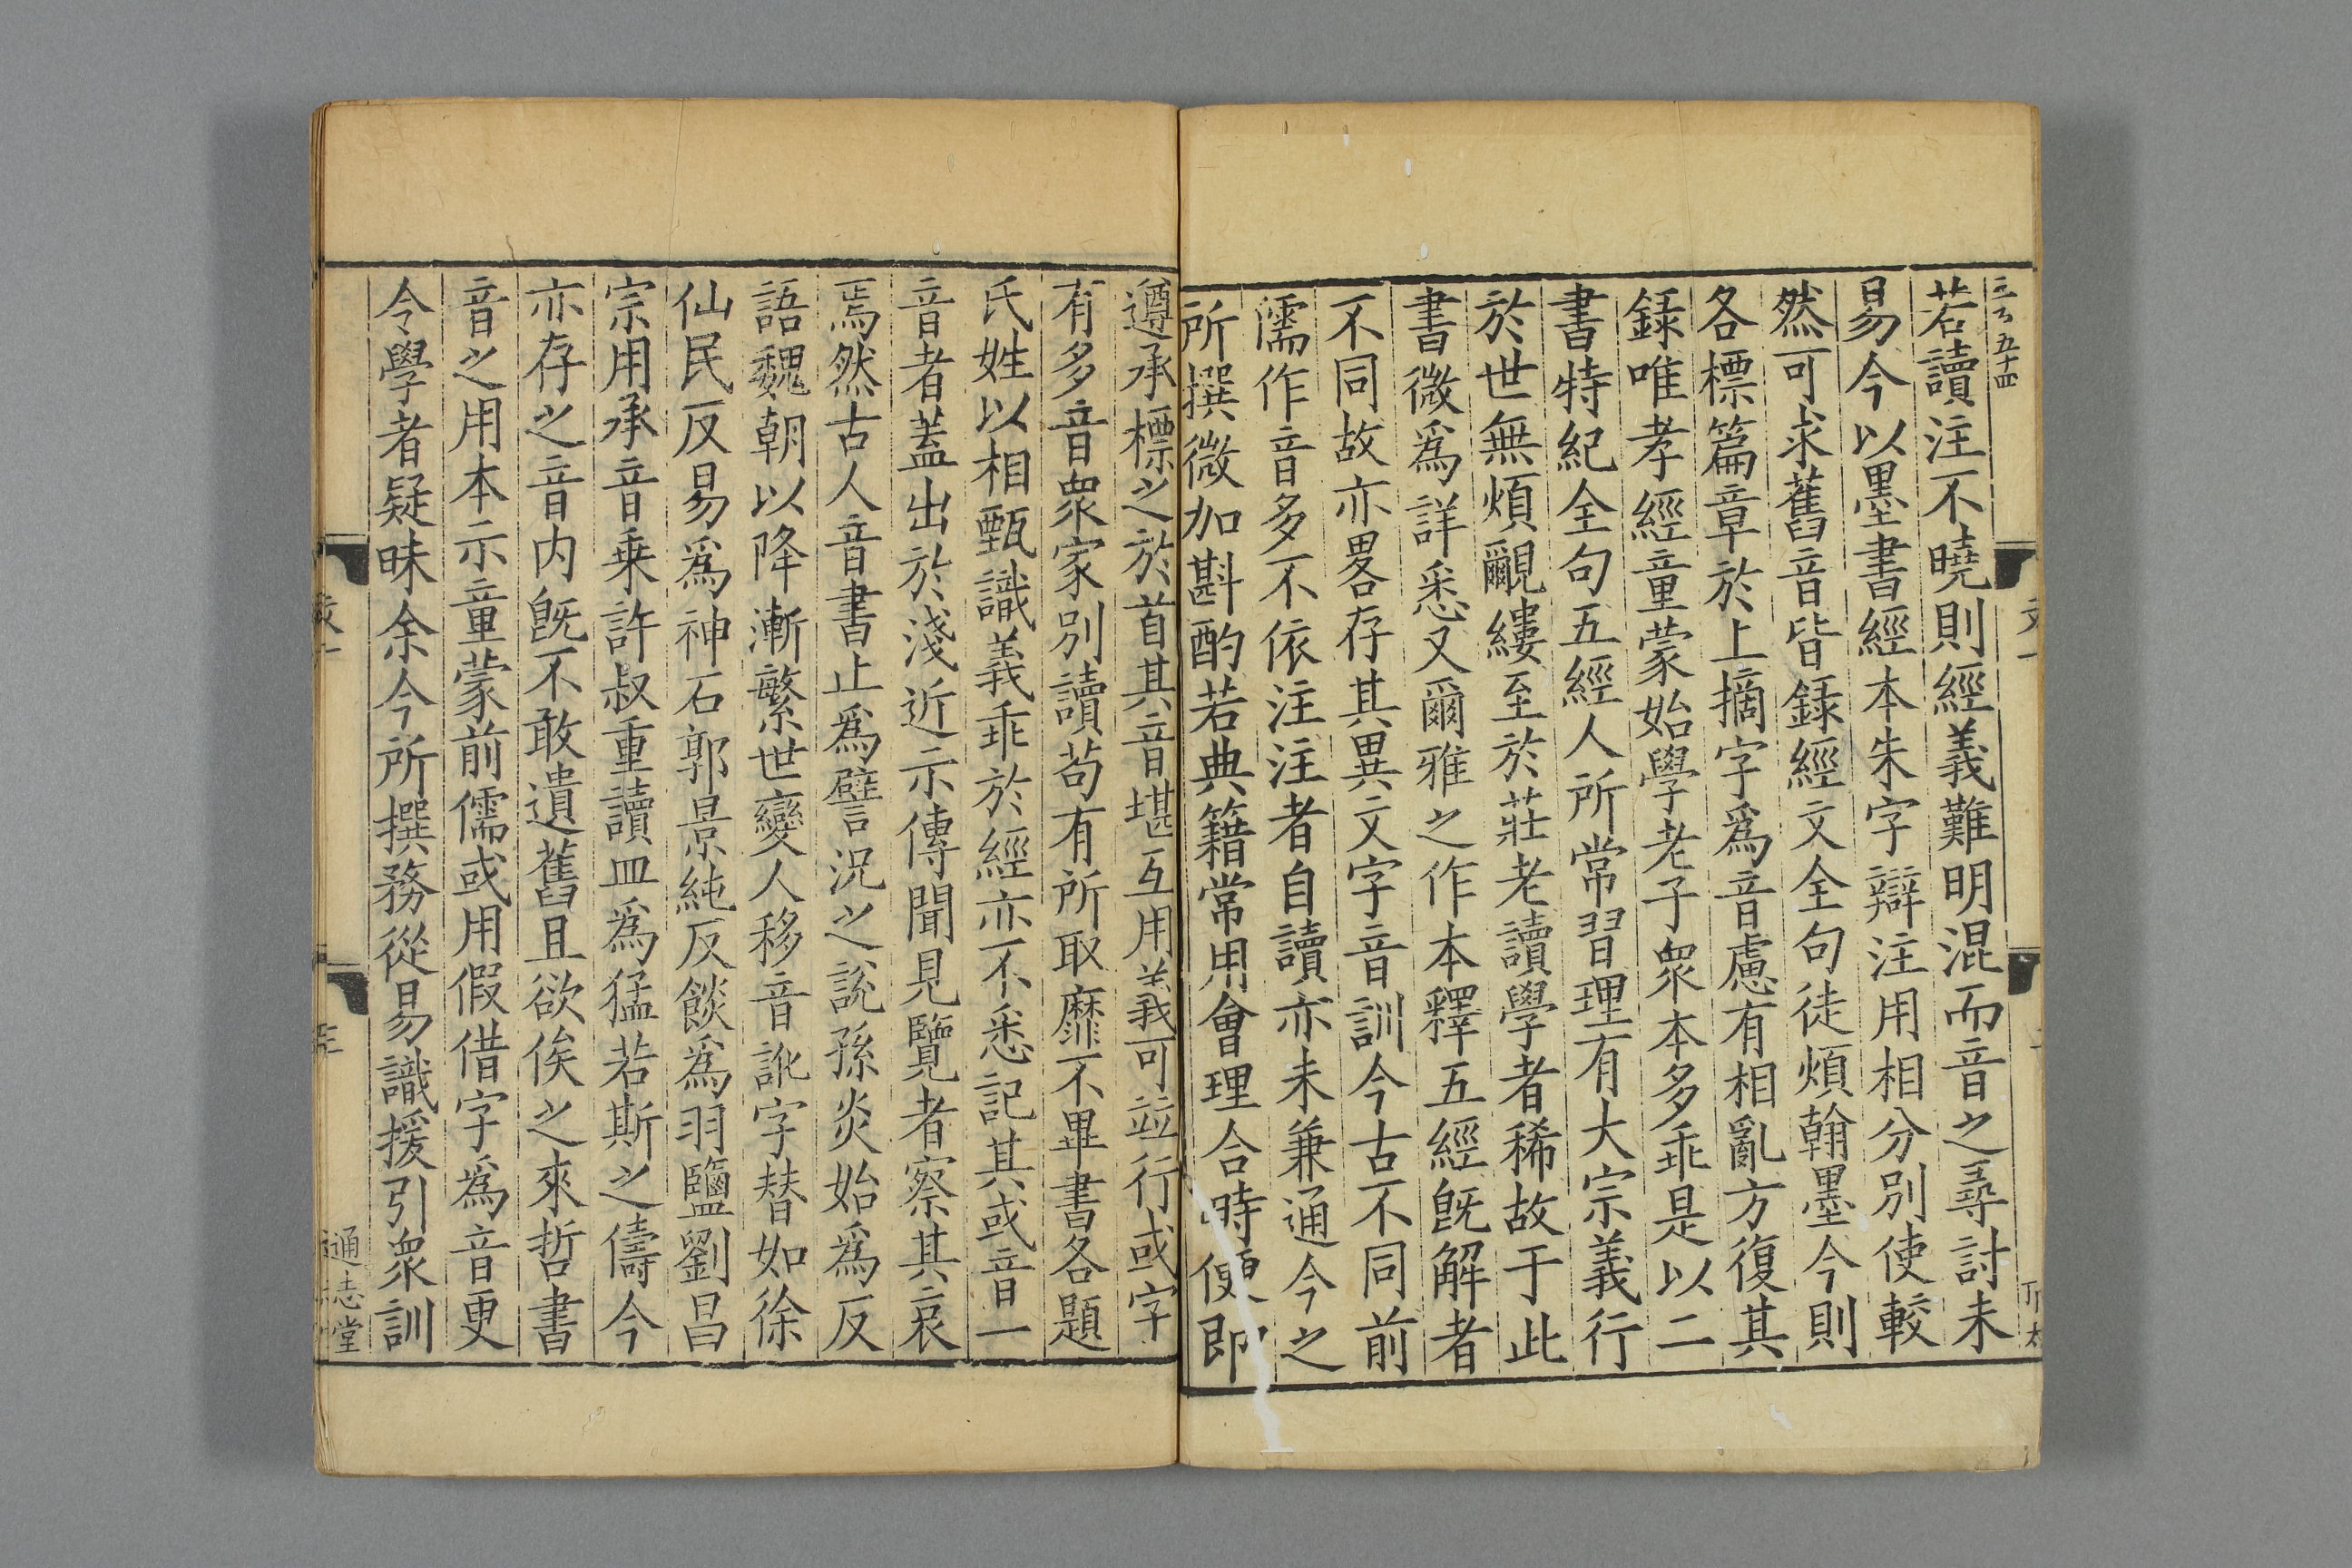 五十四
若讀注不曉則經義難明混而音之尋討未
易今以墨書經本朱字辯注用相分別使較
然可求舊音皆録經文全句徒煩翰墨今則
各標篇章於上摘字爲音慮有相亂方復其
録唯孝經童蒙始學老子衆本多乖是以二
書特紀全句五經人所常習理有大宗義行
於世無煩覼縷至於莊老讀學者稀故于此
書微爲詳悉又爾雅之作本釋五經旣解者
不同故亦畧存其異文字音訓今古不同前
儒作音多不依注注者自讀亦未兼通今之
所撰微加斟酌若典籍常用會理合時便即
遵承標之於首其音堪互用義可並行或字
有多音衆家別讀苟有所取靡不畢書各題
氏姓以相甄識義乖於經亦不悉記其或音一
音者蓋出於淺近示傳聞見覽者察其衷
焉然古人音書止爲譬況之說孫炎始爲反
語魏朝以降漸繁世變人移音訛字替如徐
仙民反易爲神石郭景純反餤爲羽鹽劉昌
宗用承音乗許叔重讀皿爲猛若斯之儔今
亦存之音内旣不敢遺舊且欲俟之來哲書
音之用本示童蒙前儒或用假借字爲音更
令學者疑昧余今所撰務從易識援引衆訓
通志堂